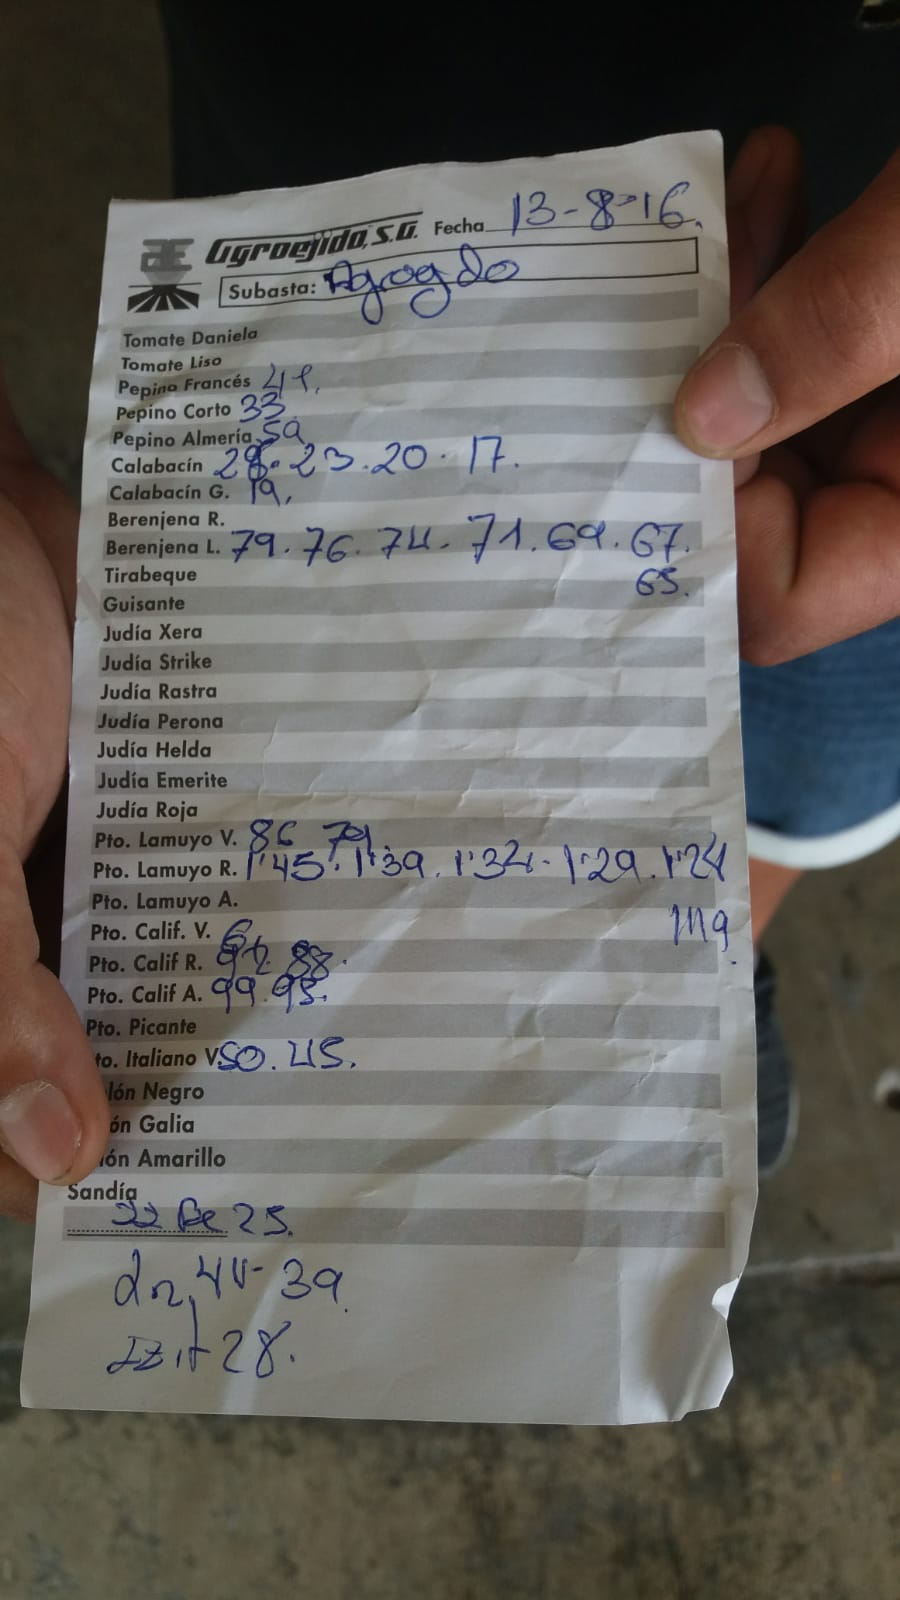 Agroejido, S.A. Fecha 13-8-16.
Subasta: Agrogdo
Tomate Daniela
Tomate Liso
Pepino Francés 41.
Pepino Corto 33
Pepino Almería 59
Calabacín 28. 23. 20. 17.
Calabacín G. 19.
Berenjena R.
Berenjena L. 79. 76. 74. 71. 69. 67.
Tirabeque 65.
Guisante
Judía Xera
Judía Strike
Judía Rastra
Judía Perona
Judía Helda
Judía Emerite
Judía Roja
Pto. Lamuyo V. 86 79.
Pto. Lamuyo R. 1'45. 1'39. 1'34. 1'29. 1'24
Pto. Lamuyo A. 1'19.
Pto. Calif. V. 6
Pto. Calif R. 92 88.
Pto. Calif A. 99. 95.
Pto. Picante
to. Italiano V. 50. 45.
lón Negro
ón Galia
ón Amarillo
Sandía
25.
44- 39.
28.